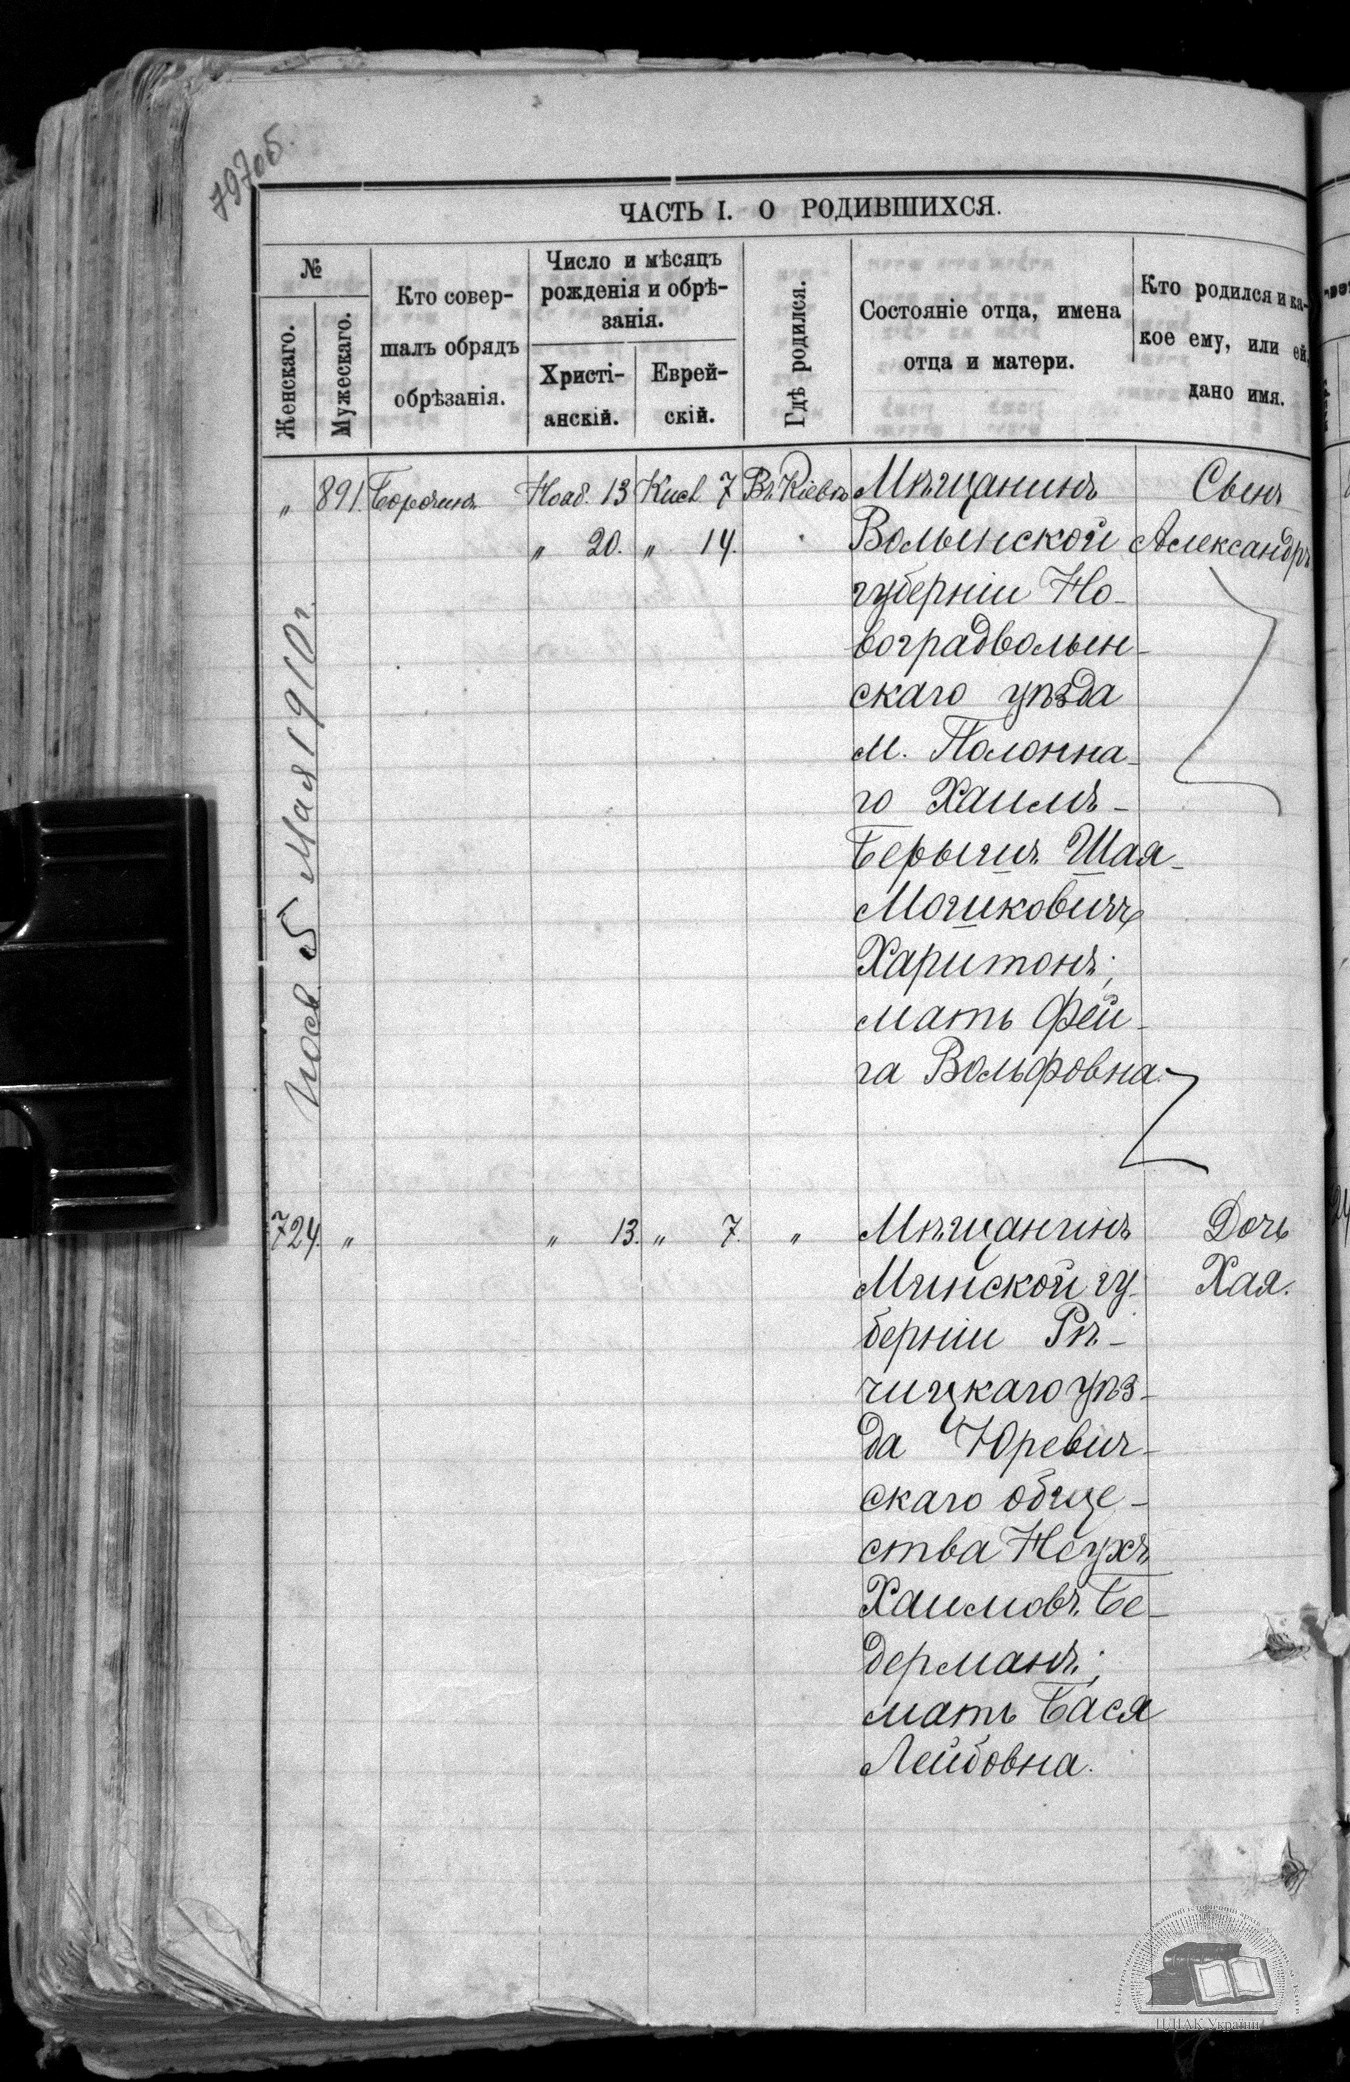 797об.
ЧАСТЬ I. О РОДИВШИХСЯ.
№
Женскаго.
Мужескаго.
Кто совер-
шалъ обрядъ
обрѣзанія.
Число и мѣсяцъ
рожденія и обрѣ-
занія.
Христі-
анскій.
Еврей-
скій.
Гдѣ родился.
Состояніе отца, имена
отца и матери.
Кто родился и ка-
кое ему, или ей,
дано имя.
„ 891. Борочинъ Нояб. 13 Кисл. 7 Въ Кіевѣ Мѣщанинъ Сынъ
„ 20. „ 14. Волынской Александръ
губерніи Но-
воградволын-
скаго уѣзда
м. Полонна-
го Хаимъ-
Берышъ Шая-
Мошковичъ
Харитонъ;
мать Фей-
га Вольфовна.
5 Мая 1910 г.
724. „ „ 13. „ 7. „ Мѣщанинъ Дочь
Минской гу- Хая.
берніи Рѣ-
чицкаго уѣз-
да Юревич-
скаго обще-
ства Неухъ
Хаимовъ Бе-
дерманъ;
мать Бася
Лейбовна.
ЦДІАК України